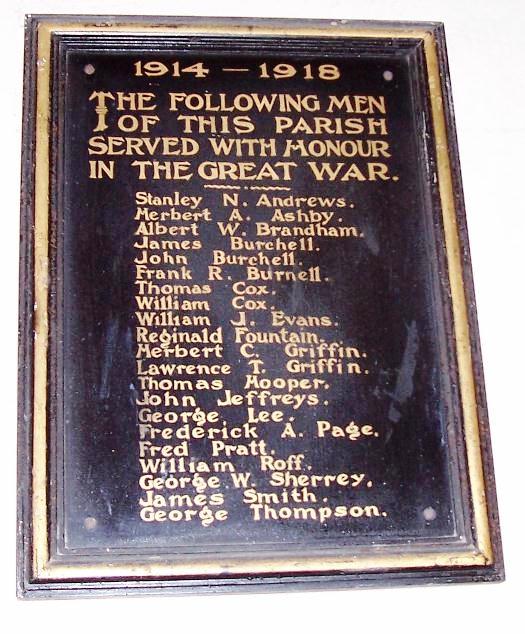 1914 – 1918
THE FOLLOWING MEN
OF THIS PARISH
SERVED WITH HONOUR
IN THE GREAT WAR.
Stanley N. Andrews.
Herbert A. Ashby.
Albert W. Brandham.
James Burchell.
John Burchell.
Frank R. Burnell.
Thomas Cox.
William Cox.
William J. Evans.
Reginald Fountain.
Herbert C. Griffin.
Lawrence T. Griffin.
Thomas Hooper.
John Jeffreys.
George Lee.
Frederick A. Page.
Fred Pratt.
William Roff.
George W. Sherrey.
James Smith.
George Thompson.